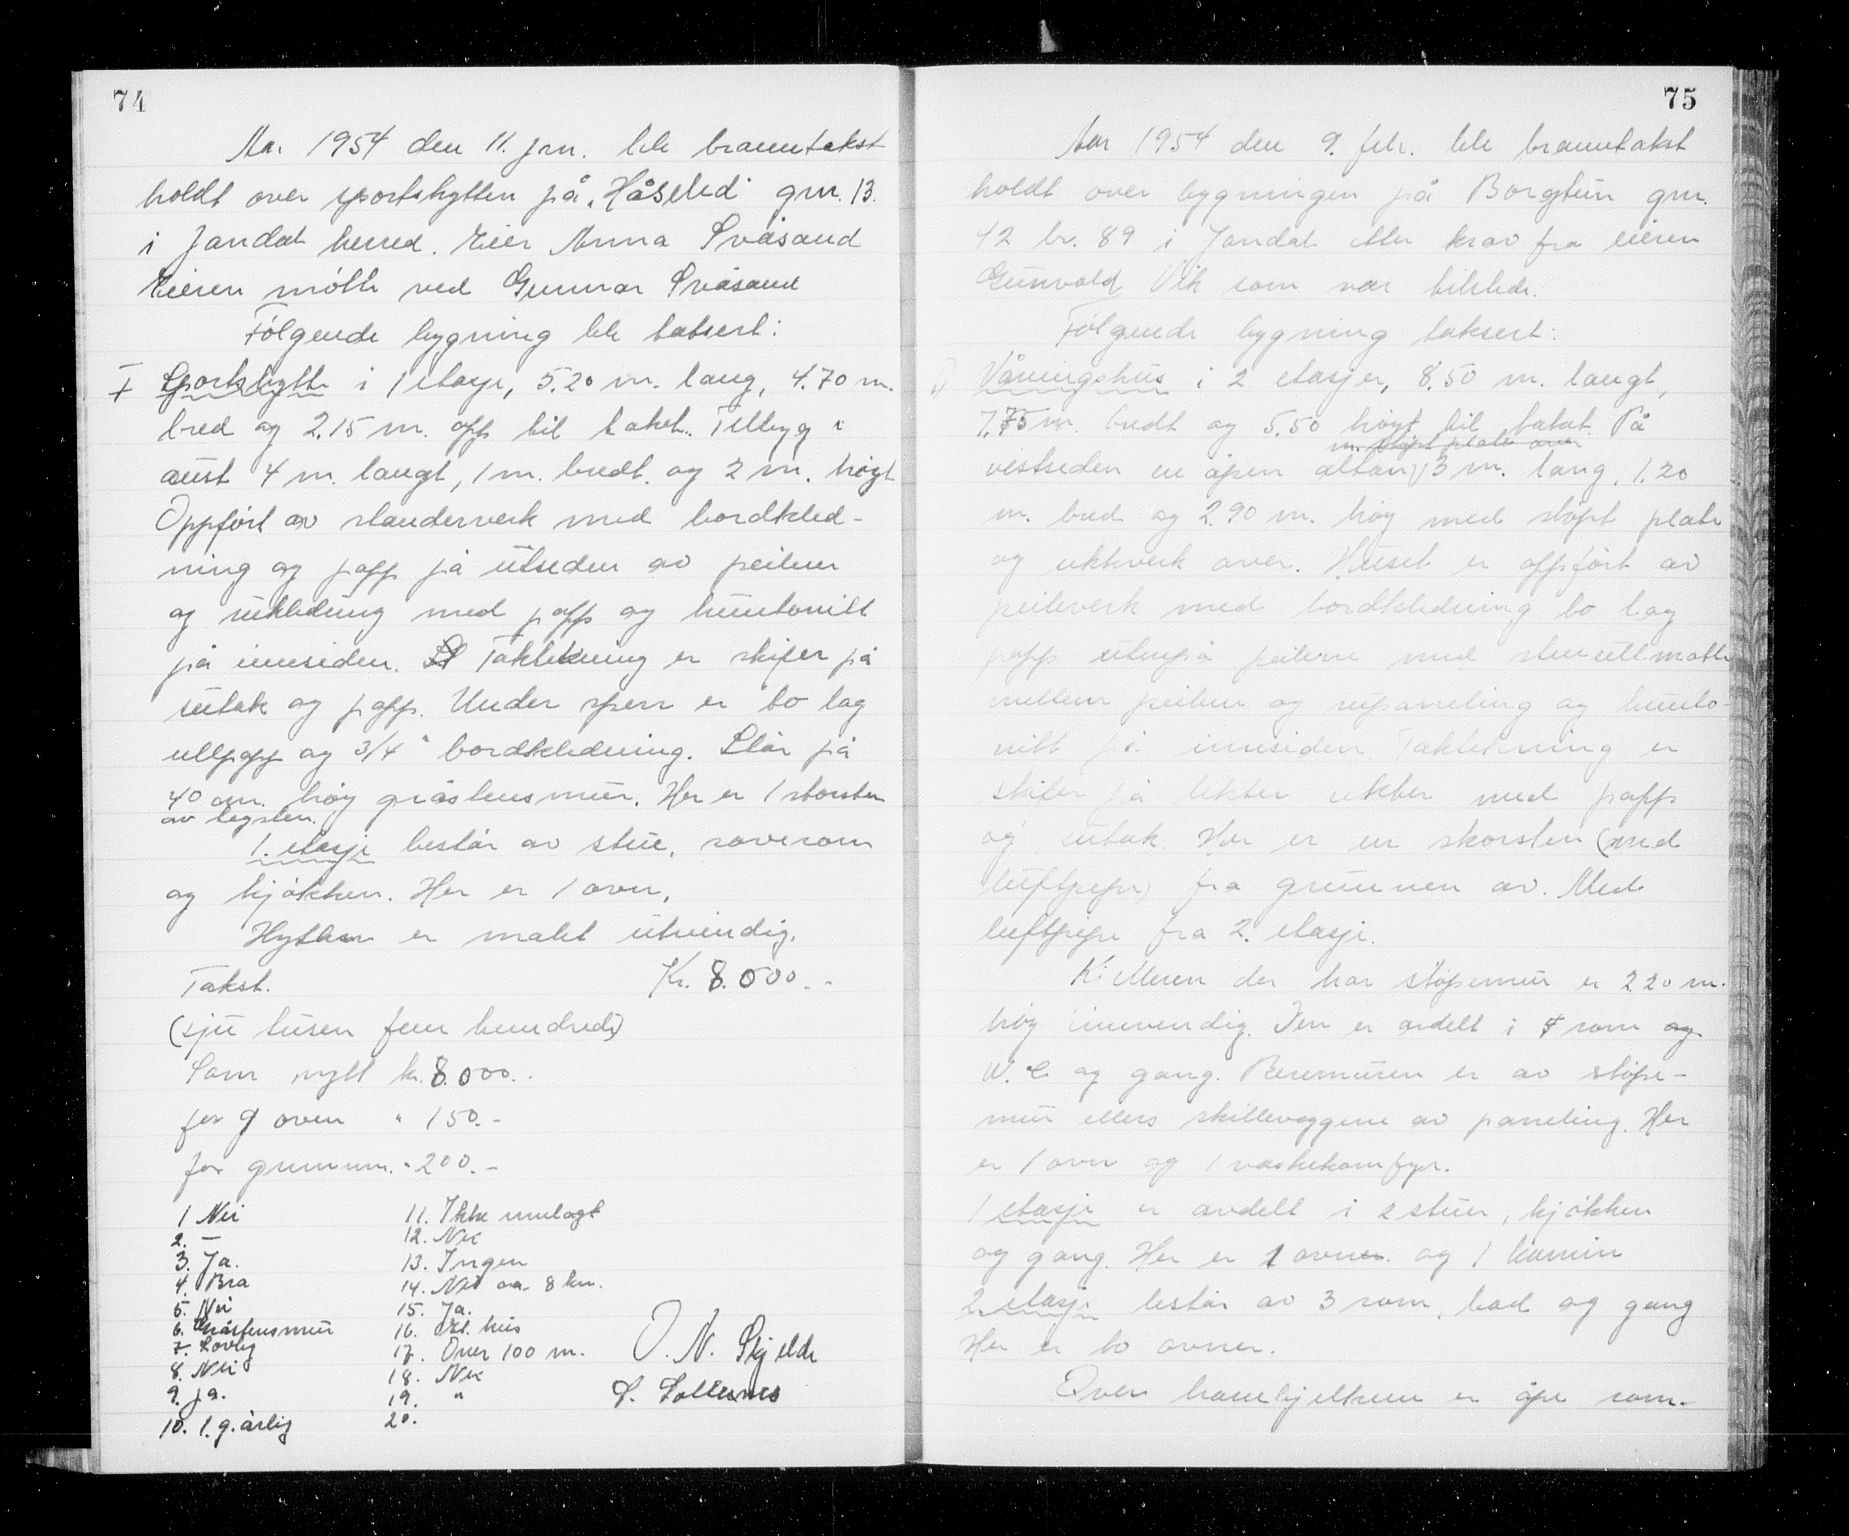 74
Aar 1954 den 11. jan. ble branntakst
holdt over sportshytten på "Håseled" gnr. 13.
i Jondal herred. Eier Anna Svåsand
Eieren møtte ved Gunnar Svåsand
Følgende bygning ble taksert:
I Sportshytte i 1 etasje, 5.20 m. lang, 4.70 m.
bred og 2.15 m. opp til taket. Tilbyg i
aust 4 m. langt, 1 m. bredt og 2 m. høgt
Oppført av standerverk med bordkled-
ning og papp på utsiden av peilene
og rekledning med papp og huntonitt
på innsiden. Taktekning er skifer på
sutak og papp. Under sperr er to lag
ullpapp og 3/4" bordkledning. Står på
40 cm. høg gråstensmur. Her er 1 skorsten
av tegsten.
1. etasje består av stue, soverom
og kjøkken. Her er 1 ovn.
Hytten er malt utvendig.
Takst. Kr. 8.000.-
(sju tusen fem hundrede)
Som nytt kr. 8.000.-
for 1 oven " 150.-
for grunnm. " 200.-
1 Nei
2. –
3. Ja.
4. Bra
5. Nei
6. Gråstensmur
7. Lovlig
8. Nei
9. ja.
10. 1 g. årlig
11. Ikke innlagt
12. Nei
13. Ingen
14. Nei ca. 8 km.
15. Ja.
16. hus
17. Over 100 m.
18. Nei
19. "
20.
O. N. Skjelde
S. Sollesnes
75
Aar 1954 den 9. febr. ble branntakst
holdt over bygningen på Borgtun gnr.
42 br. 89 i Jondal etter krav fra eieren
Gunvald Vik som var tilstede.
Følgende bygning taksert:
1) Våningshus i 2 etasjer, 8.50 m. langt,
7.75 m. bredt og 5.50 høgt til taket. På
m. støpt plate over
vestsiden en åpen altan 3 m. lang, 1.20
m. bred og 2.90 m. høg med støpt plate
og rekkverk over. Huset er oppført av
peileverk med bordkledning to lag
papp utenpå peilene med stenullmatte
mellem peilene og rupaneling og hunto-
nitt på innsiden. Taktekning er
skifer på lekter rekter med papp
og sutak. Her er en skorsten (med
luftpipe) fra grunnen av. Med
luftpipe fra 2. etasje.
Kjelleren der har støpemur er 2.20 m.
høg innvendig. Den er avdelt i 4 rom og
W.C. og gang. Beremuren er av støpe-
mur ellers skilleveggene av paneling. Her
er 1 ovn og 1 vaskekomfyr.
1 etasje er avdelt i 2 stuer, kjøkken
og gang. Her er 1 ovner og 1 kamin
2 etasje består av 3 rom, bad og gang
Her er to ovner.
Over hanebjelkene er åpe rom.